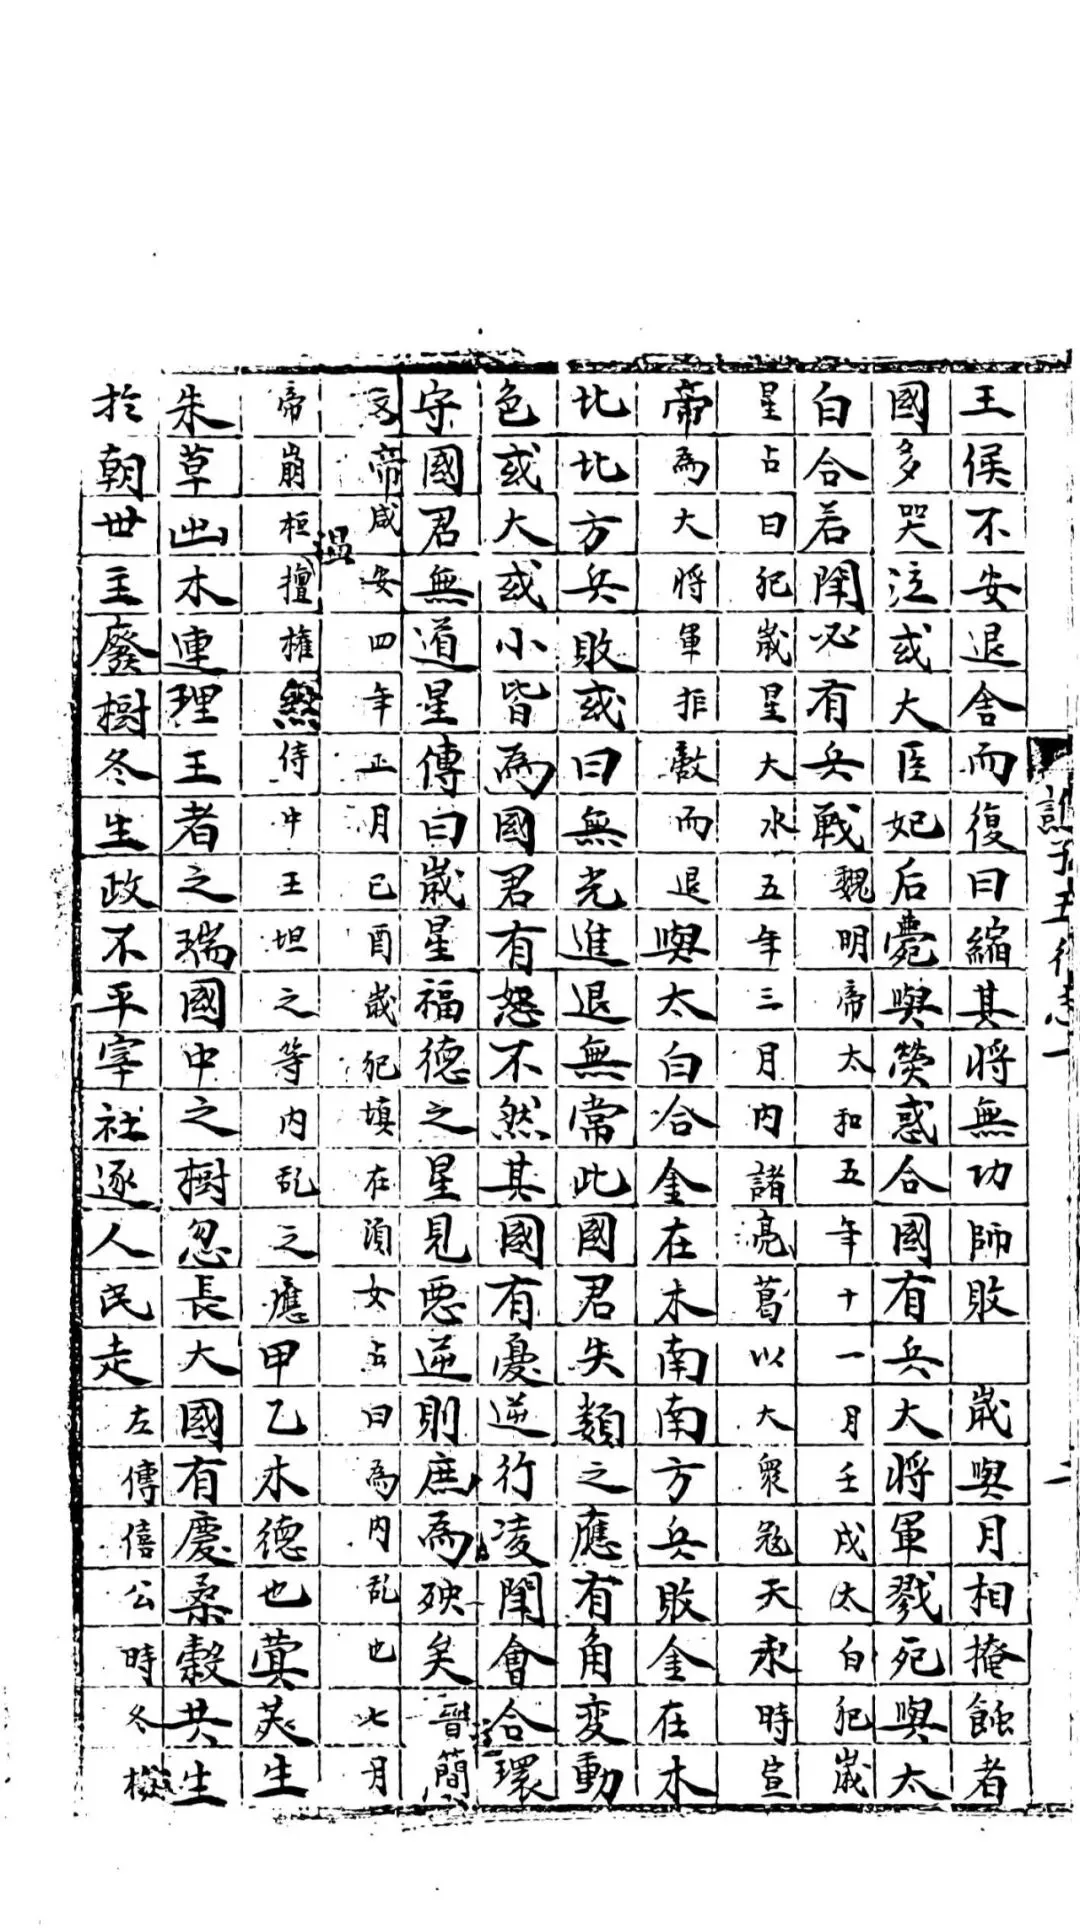 王侯不安退舍而復曰縮其將無功師敗　歲與月相掩蝕者
國多哭泣或大臣妃后薨與熒惑合國有兵大將軍戮死與太
白合若鬪必有兵戰魏明帝太和五年十一月壬戌太白犯歲
星占曰犯歲星大水五年三月內諸亮葛以大衆冦天水時宣
帝為大將軍拒敵而退與太白合金在木南南方兵敗金在木
北北方兵敗或曰無光進退無常此國君失類之應有角変動
色或大或小皆為國君有怒不然其國有憂逆行凌鬪會合環
守國君無道星傳曰歲星福德之星見惡逆則庶為殃矣晉簡
文帝咸安四年正月己酉歲犯填在須女占曰為内乱也七月
帝崩桓溫擅權煞侍中王坦之等内乱之應甲乙木德也蓂莢生
朱草出木連理王者之瑞國中之樹忽長大國有慶桑穀共生
於朝世主廢樹冬生政不平宰社逐人民走左傳僖公時冬
譙子五行志一
二